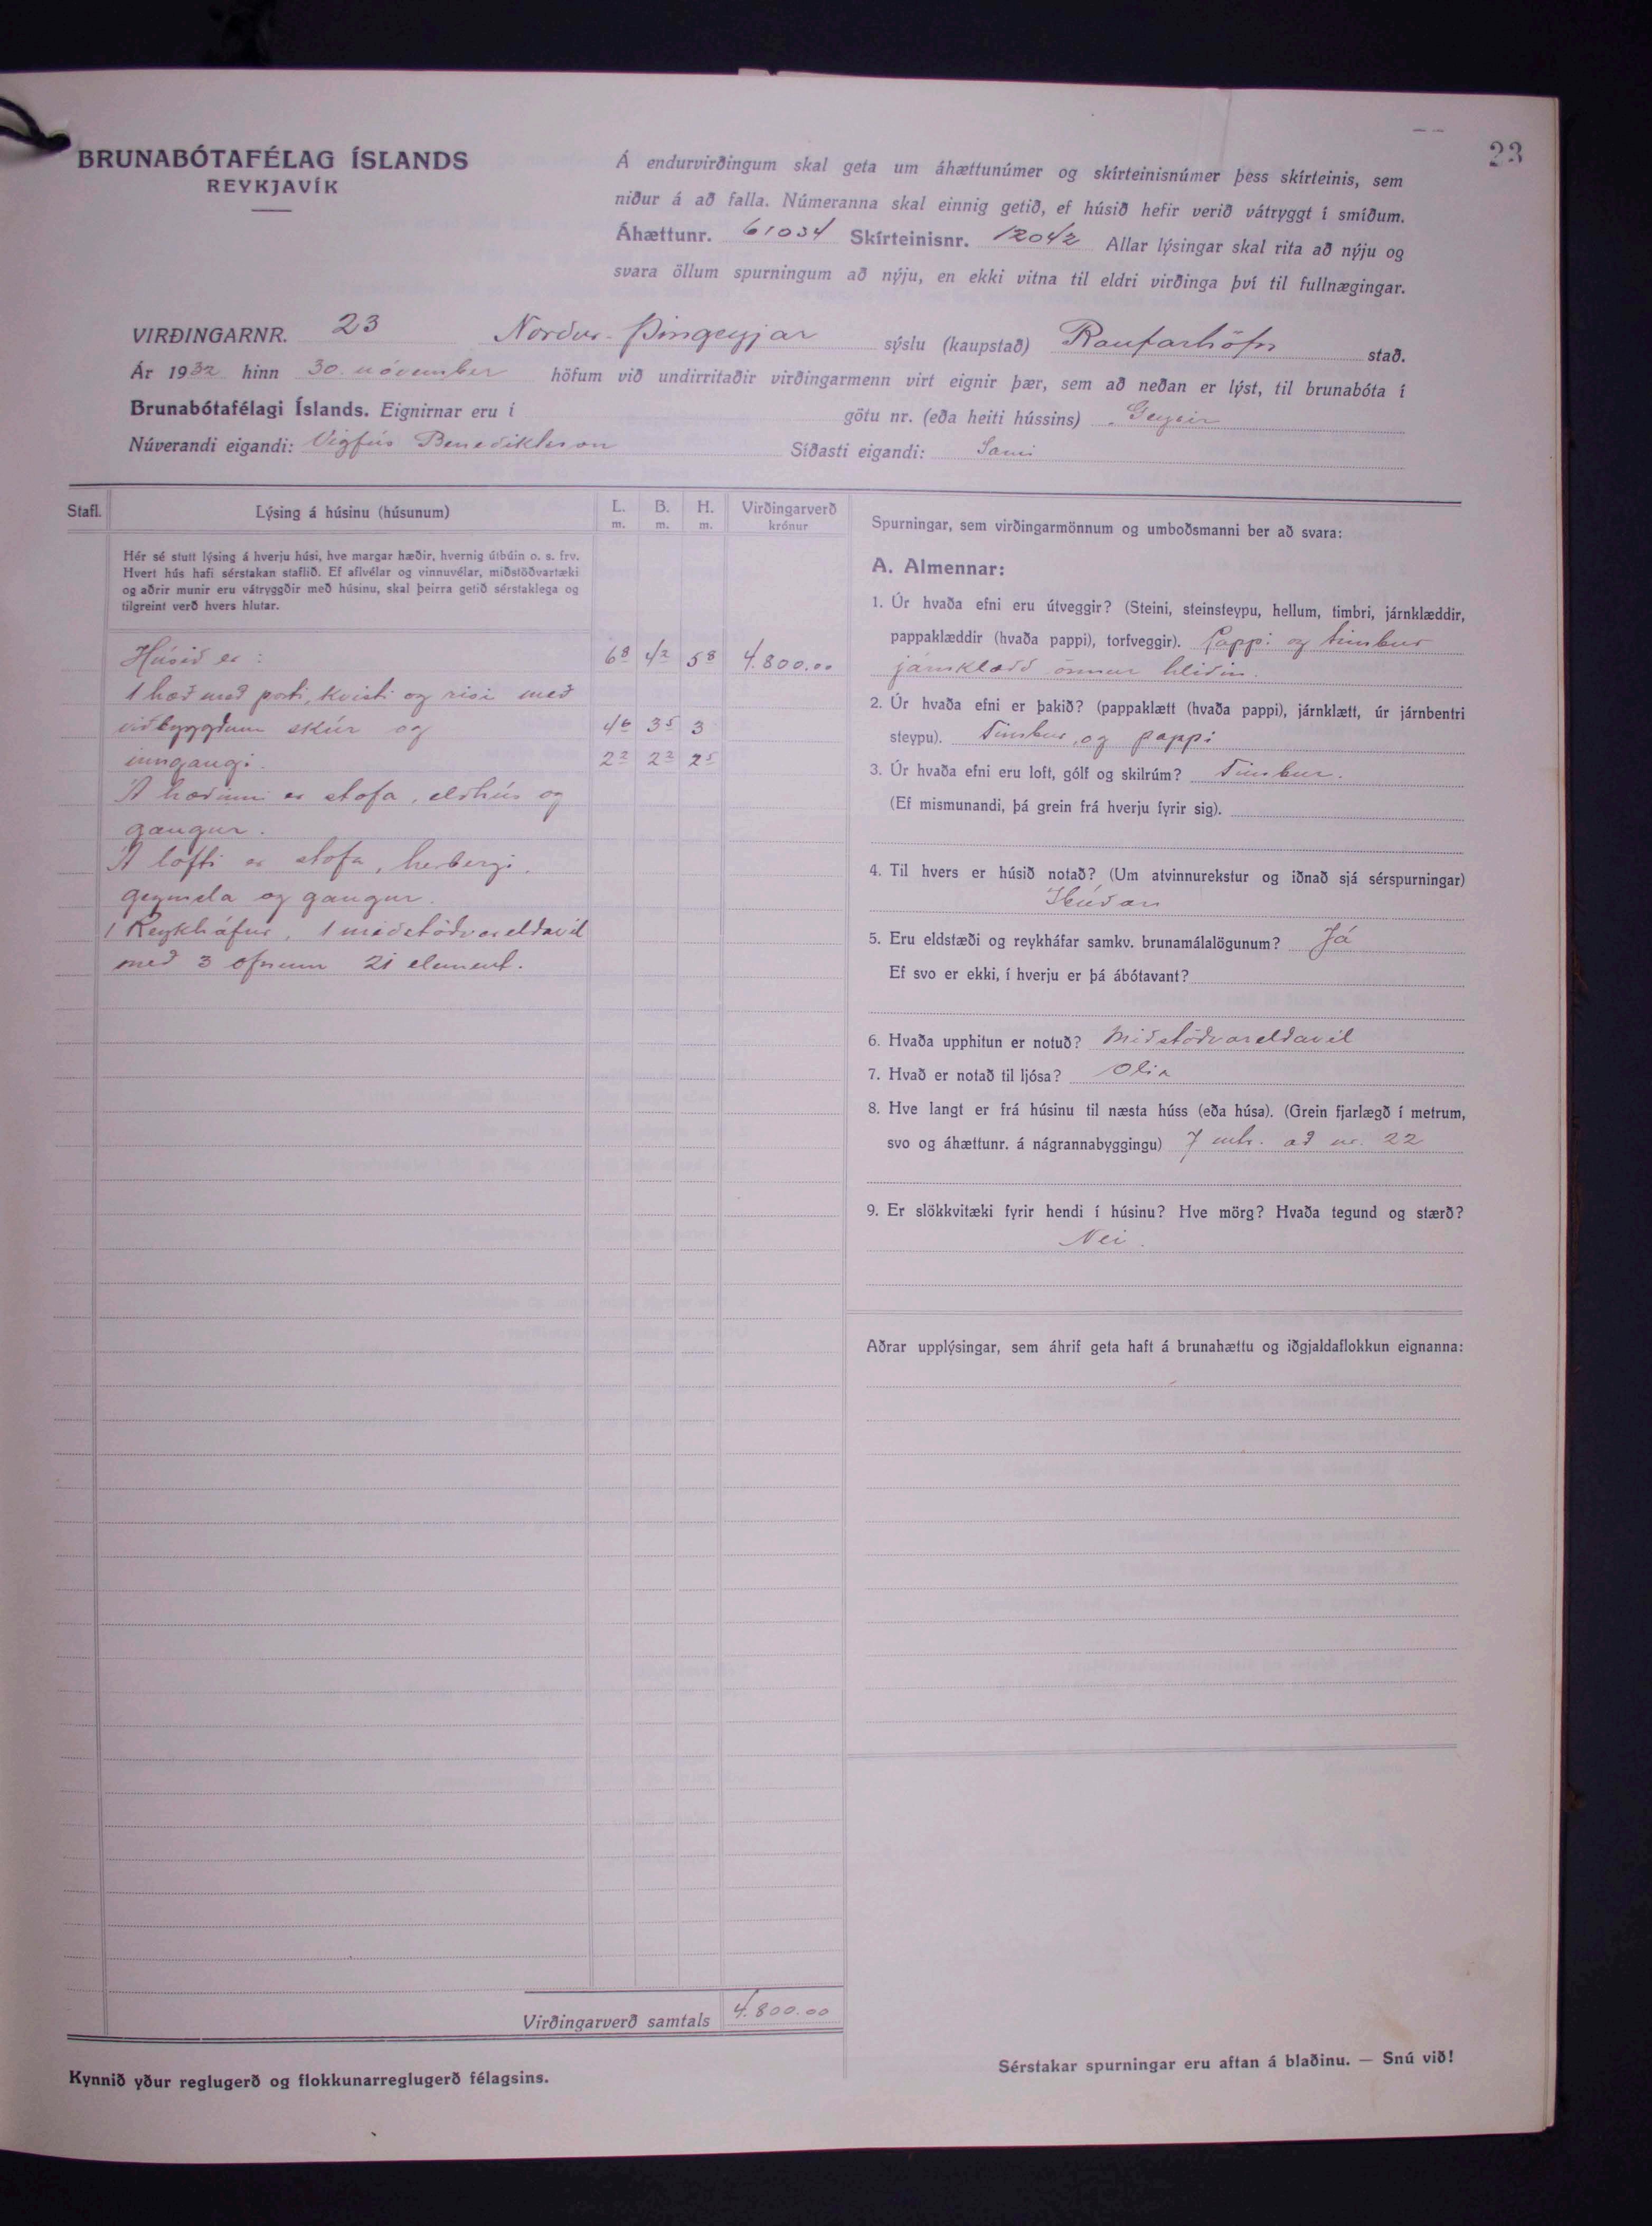 23
BRUNABÓTAFÉLAG ÍSLANDS
REYKJAVÍK
Á endurvirðingum skal geta um áhættunúmer og skírteinisnúmer þess skírteinis, sem
niður á að falla. Númeranna skal einnig getið, ef húsið hefir verið vátryggt í smíðum.
Áhættunr. 61034 Skírteinisnr. 12042 Allar lýsingar skal rita að nýju og
svara öllum spurningum að nýju, en ekki vitna til eldri virðinga því til fullnægingar.
VIRÐINGARNR. 23 Norður-Þingeyjar sýslu (kaupstað) Raufarhöfn stað.
Ár 1932 hinn 30. nóvember höfum við undirritaðir virðingarmenn virt eignir þær, sem að neðan er lýst, til brunabóta í
Brunabótafélagi Íslands. Eignirnar eru í götu nr. (eða heiti hússins) Geysir
Núverandi eigandi: Vigfús Benediktsson Síðasti eigandi: Sami
Stafl. Lýsing á húsinu (húsunum) L. m. B. m. H. m. Virðingarverð krónur
Hér sé stutt lýsing á hverju húsi, hve margar hæðir, hvernig útbúin o. s. frv.
Hvert hús hafi sérstakan staflið. Ef aflvélar og vinnuvélar, miðstöðvartæki
og aðrir munir eru vátryggðir með húsinu, skal þeirra getið sérstaklega og
tilgreint verð hvers hlutar.
Húsið er: 6 8 4 2 5 8 4.800.00
1 hæð með porti, kvisti og risi með
viðbyggðum skúr og 4 6 3 5 3
inngangi. 2 2 2 2 2 5
Á hæðinni er stofa, eldhús og
gangur.
Á lofti er stofa, herbergi,
geymsla og gangur.
1 Reykháfur, 1 miðstöðvareldavél
með 3 ofnum 21 element.
Virðingarverð samtals 4.800.00
Kynnið yður reglugerð og flokkunarreglugerð félagsins.
Spurningar, sem virðingarmönnum og umboðsmanni ber að svara:
A. Almennar:
1. Úr hvaða efni eru útveggir? (Steini, steinsteypu, hellum, timbri, járnklæddir,
pappaklæddir (hvaða pappi), torfveggir). Pappi og timbur
járnklædd önnur hliðin.
2. Úr hvaða efni er þakið? (pappaklætt (hvaða pappi), járnklætt, úr járnbentri
steypu). Timbur, og pappi
3. Úr hvaða efni eru loft, gólf og skilrúm? Timbur.
(Ef mismunandi, þá grein frá hverju fyrir sig).
4. Til hvers er húsið notað? (Um atvinnurekstur og iðnað sjá sérspurningar)
Íbúðar
5. Eru eldstæði og reykháfar samkv. brunamálalögunum? Já
Ef svo er ekki, í hverju er þá ábótavant?
6. Hvaða upphitun er notuð? Miðstöðvareldavél
7. Hvað er notað til ljósa? Olia
8. Hve langt er frá húsinu til næsta húss (eða húsa). (Grein fjarlægð í metrum,
svo og áhættunr. á nágrannabyggingu) 7 mtr. að nr. 22
9. Er slökkvitæki fyrir hendi í húsinu? Hve mörg? Hvaða tegund og stærð?
Nei.
Aðrar upplýsingar, sem áhrif geta haft á brunahættu og iðgjaldaflokkun eignanna:
Sérstakar spurningar eru aftan á blaðinu. — Snú við!